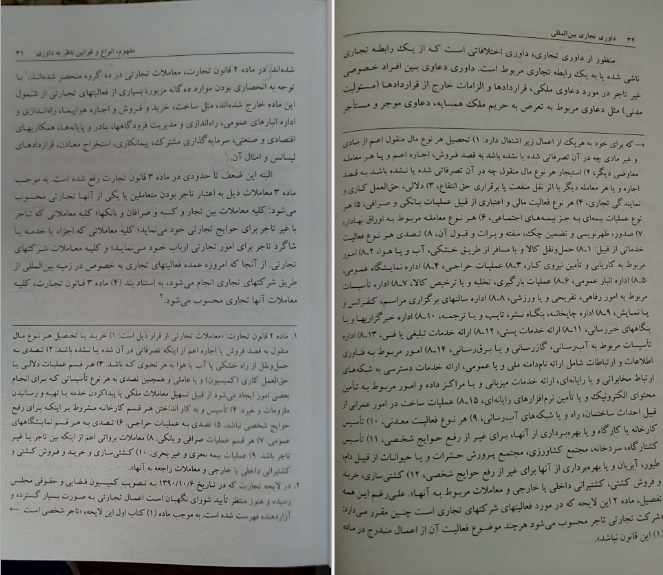 مفهوم، انواع و قوانین ناظر به داوری ۳۱
شده‌اند. در ماده ۲ قانون تجارت، معاملات تجارتی در ده گروه منحصر شده‌اند.۱ با
توجه به انحصاری بودن موارد ده‌گانه مزبور، بسیاری از فعالیتهای تجارتی از شمول
این ماده خارج شده‌اند، مثل ساخت، خرید و فروش و اجاره هواپیما، راه‌اندازی و
اداره انبارهای عمومی، راه‌اندازی و مدیریت فرودگاهها، بنادر و پایانه‌ها، همکاریهای
اقتصادی و صنعتی، سرمایه‌گذاری مشترک، پیمانکاری، استخراج معادن، قراردادهای
لیسانس و امثال آن.
البته این ضعف تا حدودی در ماده ۳ قانون تجارت رفع شده است. به موجب
ماده ۳ معاملات ذیل به اعتبار تاجر بودن متعاملین یا یکی از آنها تجارتی محسوب
می‌شود: کلیه معاملات بین تجار و کسبه و صرافان و بانکها؛ کلیه معاملاتی که تاجر
یا غیر تاجر برای حوایج تجارتی خود می‌نماید؛ کلیه معاملاتی که اجزاء یا خدمه یا
شاگرد تاجر برای امور تجارتی ارباب خود می‌نماید؛ و کلیه معاملات شرکتهای
تجارتی. از آنجا که امروزه عمده فعالیتهای تجاری به خصوص در زمینه بین‌المللی از
طریق شرکتهای تجاری انجام می‌شود، به استناد بند (۴) ماده ۳ قانون تجارت، کلیه
معاملات آنها تجاری محسوب می‌شود.۲
۱. ماده ۲ قانون تجارت: «معاملات تجارتی از قرار ذیل است: ۱) خرید یا تحصیل هر نوع مال
منقول به قصد فروش یا اجاره اعم از اینکه تصرفاتی در آن شده یا نشده باشد. ۲) تصدی به
حمل‌ونقل از راه خشکی یا آب یا هوا به هر نحوی که باشد. ۳) هر قسم عملیات دلالی یا
حق‌العمل کاری (کمیسیون) و یا عاملی و همچنین تصدی به هر نوع تأسیساتی که برای انجام
بعضی امور ایجاد می‌شود از قبیل تسهیل معاملات ملکی یا پیداکردن خدمه یا تهیه و رسانیدن
ملزومات و غیره. ۴) تأسیس و به کار انداختن هر قسم کارخانه مشروط بر اینکه برای رفع
حوایج شخصی نباشد. ۵) تصدی به عملیات حراجی. ۶) تصدی به هر قسم نمایشگاههای
عمومی. ۷) هر قسم عملیات صرافی و بانکی. ۸) معاملات برواتی اعم از اینکه بین تاجر یا غیر
تاجر باشد. ۹) عملیات بیمه بحری و غیر بحری. ۱۰) کشتی‌سازی و خرید و فروش کشتی و
کشتیرانی داخلی یا خارجی و معاملات راجعه به آنها».
۲. در لایحه تجارت که در تاریخ ۱۳۹۰/۱۰/۶ به تصویب کمیسیون قضایی و حقوقی مجلس
رسیده و هنوز منتظر تأیید شورای نگهبان است اعمال تجارتی به صورت بسیار گسترده و
آزاردهنده فهرست شده است. به موجب ماده (۱) کتاب اول این لایحه، «تاجر شخصی است ←
۳۲ داوری تجاری بین‌المللی
منظور از داوری تجاری، داوری اختلافاتی است که از یک رابطه تجاری
ناشی شده یا به یک رابطه تجاری مربوط است. داوری دعاوی بین افراد خصوصی
غیر تاجر در مورد دعاوی ملکی، قراردادها و الزامات خارج از قراردادها (مسئولیت
مدنی) مثل دعاوی مربوط به تعرض به حریم ملک همسایه، دعاوی موجر و مستأجر
→ که برای خود به هریک از اعمال زیر اشتغال دارد: ۱) تحصیل هر نوع مال منقول اعم از مادی
و غیر مادی چه در آن تصرفاتی شده یا نشده باشد به قصد فروش، اجاره اعم و یا هر معامله
معاوضی دیگر؛ ۲) استیجار هر نوع مال منقول چه در آن تصرفاتی شده یا نشده باشد به قصد
اجاره و یا هر معامله دیگر با اثر نقل منفعت یا برقراری حق انتفاع، ۳) دلالی، حق‌العمل کاری و
نمایندگی تجاری، ۴) هر نوع فعالیت مالی و اعتباری از قبیل عملیات بانکی و صرافی، ۵) هر
نوع عملیات بیمه‌ای به جز بیمه‌های اجتماعی، ۶) هر نوع معامله مربوط به اوراق بهادار،
۷) صدور، ظهرنویسی و تضمین چک، سفته و برات و قبول آن، ۸) تصدی هر نوع فعالیت
خدماتی از قبیل: ۸ـ۱) حمل‌ونقل کالا و یا مسافر از طریق خشکی، آب و یا هوا، ۸ـ۲) امور
مربوط به کاریابی و تأمین نیروی کار، ۸ـ۳) عملیات حراجی، ۸ـ۴) اداره نمایشگاه عمومی،
۸ـ۵) اداره انبار عمومی، ۸ـ۶) عملیات بارگیری، تخلیه و یا ترخیص کالا، ۸ـ۷) اداره تأسیسات
مربوط به امور رفاهی، تفریحی و یا ورزشی، ۸ـ۸) اداره سالنهای برگزاری مراسم، کنفرانس و
یا نمایش، ۸ـ۹) اداره چاپخانه، بنگاه نشر، تایپ و یا ترجمه، ۸ـ۱۰) اداره خبرگزاریها و یا
بنگاههای خبررسانی، ۸ـ۱۱) ارائه خدمات پستی، ۸ـ۱۲) ارائه خدمات تبلیغی یا فنی، ۸ـ۱۳) اداره
تأسیسات مربوط به آب‌رسانی، گازرسانی و یا برق‌رسانی، ۸ـ۱۴) امور مربوط به فناوری
اطلاعات و ارتباطات شامل ارائه نام‌دامنه ملی و یا عمومی، ارائه خدمات دسترسی به شبکه‌های
ارتباط مخابراتی و یا رایانه‌ای، ارائه خدمات میزبانی و یا مراکز داده و امور مربوط به تأمین
محتوای الکترونیک و یا تأمین نرم‌افزارهای رایانه‌ای، ۸ـ۱۵) عملیات ساخت در امور عمرانی از
قبیل احداث ساختمان، راه و یا شبکه‌های آب‌رسانی، ۹) هر نوع فعالیت معدنی، ۱۰) تأسیس
کارخانه یا کارگاه و یا بهره‌برداری از آنها، برای غیر از رفع حوایج شخصی، ۱۱) تأسیس
کشتارگاه، سردخانه، مجتمع کشاورزی، مجتمع پرورش حشرات و یا حیوانات از قبیل دام،
طیور، آبزیان و یا بهره‌برداری از آنها برای غیر از رفع حوایج شخصی، ۱۲) کشتی‌سازی، خرید
و فروش کشتی، کشتیرانی داخلی یا خارجی و معاملات مربوط به آنها». علی‌رغم این همه
تفصیل، ماده ۲ این لایحه که در مورد فعالیتهای شرکتهای تجاری است چنین مقرر می‌دارد:
«شرکت تجارتی تاجر محسوب می‌شود هرچند موضوع فعالیت آن از اعمال مندرج در ماده
(۱) این قانون نباشد».